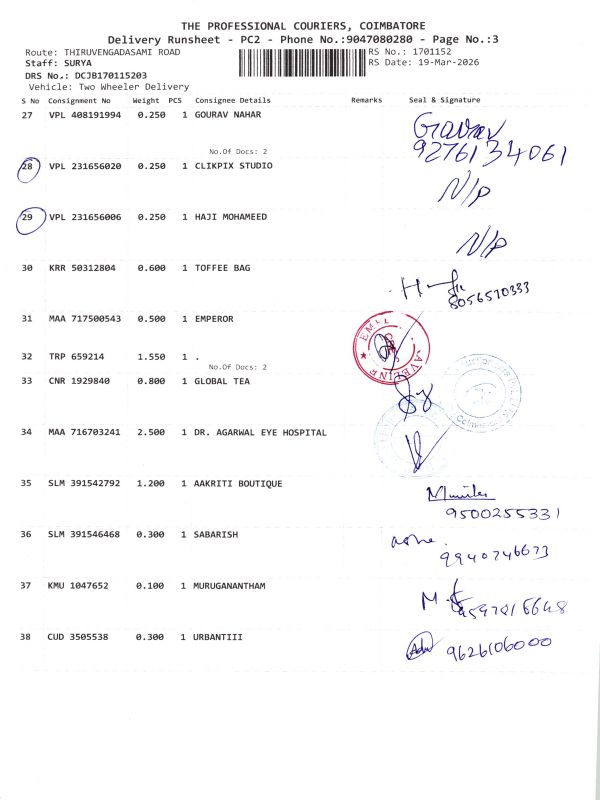 THE PROFESSIONAL COURIERS, COIMBATORE
Delivery Runsheet - PC2 - Phone No.:9047080280 - Page No.:3
Route: THIRUVENGADASAMI ROAD RS No.: 1701152
Staff: SURYA RS Date: 19-Mar-2026
DRS No.: DCJB170115203
Vehicle: Two Wheeler Delivery
S No Consignment No Weight PCS Consignee Details Remarks Seal & Signature
27 VPL 408191994 0.250 1 GOURAV NAHAR Gourav
No.Of Docs: 2 9276134061
28 VPL 231656020 0.250 1 CLIKPIX STUDIO N/p
29 VPL 231656006 0.250 1 HAJI MOHAMEED N/p
30 KRR 50312804 0.600 1 TOFFEE BAG
8056570333
31 MAA 717500543 0.500 1 EMPEROR
32 TRP 659214 1.550 1 .
No.Of Docs: 2
33 CNR 1929840 0.800 1 GLOBAL TEA
34 MAA 716703241 2.500 1 DR. AGARWAL EYE HOSPITAL
35 SLM 391542792 1.200 1 AAKRITI BOUTIQUE
9500255331
36 SLM 391546468 0.300 1 SABARISH
9940746673
37 KMU 1047652 0.100 1 MURUGANANTHAM
38 CUD 3505538 0.300 1 URBANTIII 9626106000